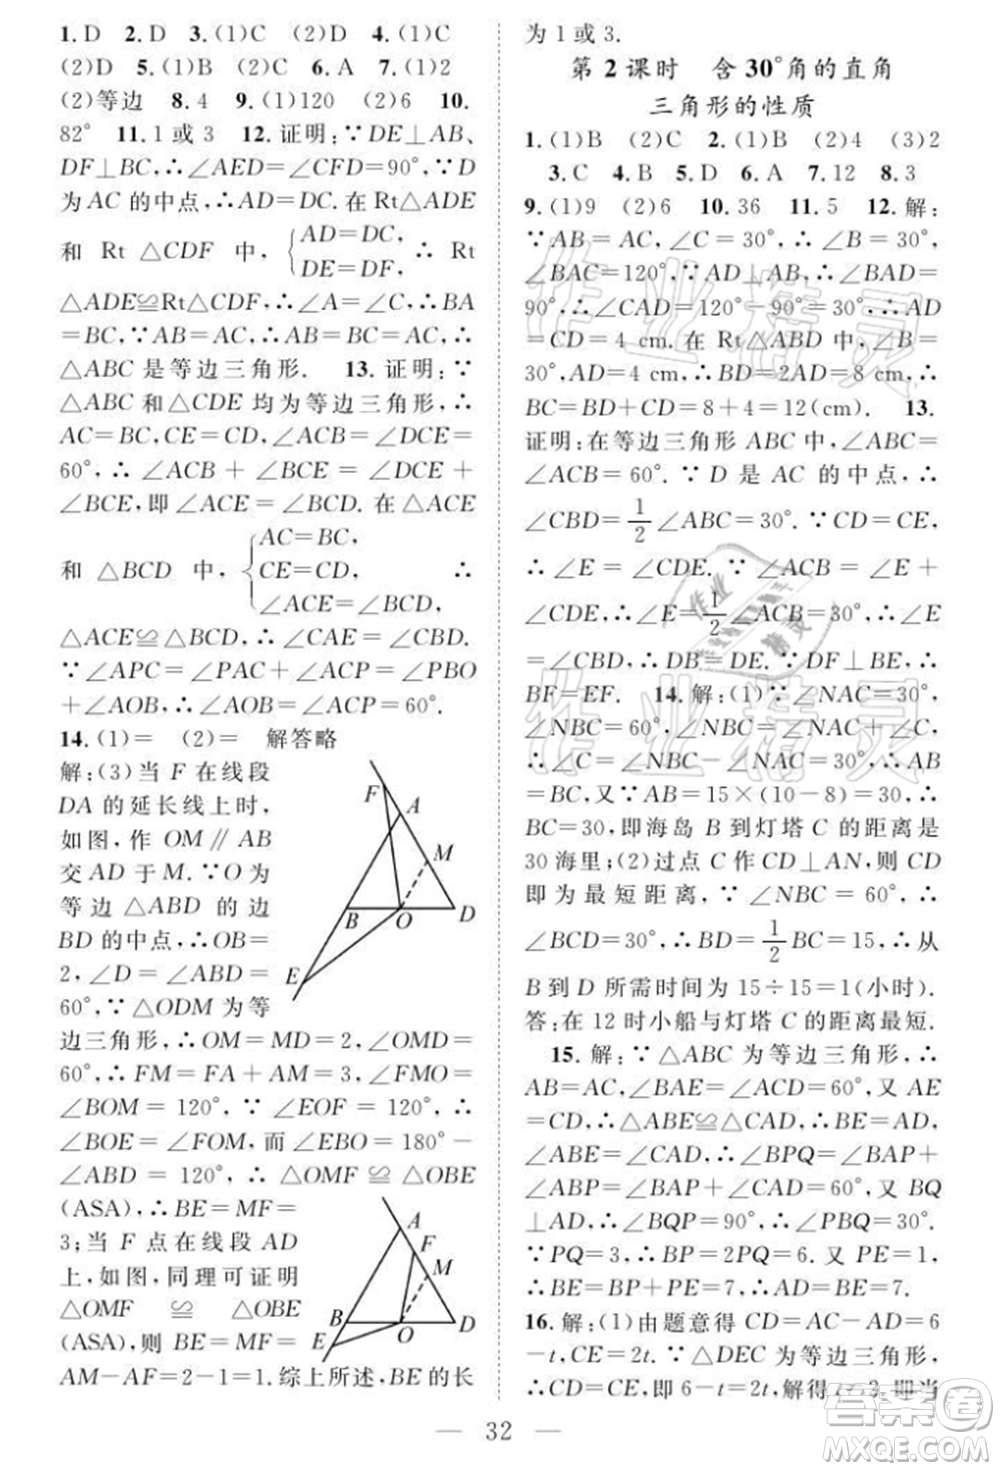 1.D 2.D 3.(1)C (2)D 4.(1)C
(2)D 5.(1)B (2)C 6.A 7.(1)2
(2)等边 8.4 9.(1)120 (2)6 10.
82° 11.1或3 12.证明:∵DE⊥AB,
DF⊥BC,∴∠AED=∠CFD=90°,∵D
为AC的中点,∴AD=DC.在Rt△ADE
和 Rt △CDF 中, {AD=DC, DE=DF, ∴ Rt
△ADE≌Rt△CDF,∴∠A=∠C,∴BA
=BC,∵AB=AC,∴AB=BC=AC,∴
△ABC是等边三角形. 13.证明:∵
△ABC和△CDE均为等边三角形,∴
AC=BC,CE=CD,∠ACB=∠DCE=
60°,∴∠ACB+∠BCE=∠DCE+
∠BCE,即∠ACE=∠BCD.在△ACE
和 △BCD 中, {AC=BC, CE=CD, ∠ACE=∠BCD, ∴
△ACE≌△BCD,∴∠CAE=∠CBD.
∵∠APC+∠PAC+∠ACP=∠PBO
+∠AOB,∴∠AOB=∠ACP=60°.
14.(1)= (2)= 解答略
解:(3)当F在线段
DA的延长线上时,
如图,作OM∥AB
交AD于M.∵O为
等边△ABD的边
BD的中点,∴OB=
2,∠D=∠ABD=
60°,∵△ODM为等
边三角形,∴OM=MD=2,∠OMD=
60°,∴FM=FA+AM=3,∠FMO=
∠BOM=120°,∵∠EOF=120°,∴
∠BOE=∠FOM,而∠EBO=180°-
∠ABD=120°,∴△OMF≌△OBE
(ASA),∴BE=MF=
3;当F点在线段AD
上,如图,同理可证明
△OMF ≌ △OBE
(ASA),则BE=MF=
AM-AF=2-1=1.综上所述,BE的长
F
A
M
B
O
D
E
A
F
M
B
O
D
E
为1或3.
第2课时 含30°角的直角
三角形的性质
1.(1)B (2)C 2.(1)B (2)4 (3)2
3.C 4.B 5.D 6.A 7.12 8.3
9.(1)9 (2)6 10.36 11.5 12.解:
∵AB=AC,∠C=30°,∴∠B=30°,
∠BAC=120°,∵AD⊥AB,∴∠BAD=
90°,∴∠CAD=120°-90°=30°,∴AD
=CD=4 cm.在Rt△ABD中,∠B=
30°,AD=4 cm,∴BD=2AD=8 cm,∴
BC=BD+CD=8+4=12(cm). 13.
证明:在等边三角形ABC中,∠ABC=
∠ACB=60°.∵D是AC的中点,∴
∠CBD=1/2∠ABC=30°.∵CD=CE,
∴∠E=∠CDE.∵∠ACB=∠E+
∠CDE,∴∠E=1/2∠ACB=30°,∴∠E
=∠CBD,∴DB=DE.∵DF⊥BE,∴
BF=EF. 14.解:(1)∵∠NAC=30°,
∠NBC=60°,∴∠NBC=∠NAC+∠C,
∴∠C=∠NBC-∠NAC=30°,∴AB
=BC,又∵AB=15×(10-8)=30,∴
BC=30,即海岛B到灯塔C的距离是
30海里;(2)过点C作CD⊥AN,则CD
即为最短距离,∵∠NBC=60°,∴
∠BCD=30°,∴BD=1/2BC=15,∴从
B到D所需时间为15÷15=1(小时).
答:在12时小船与灯塔C的距离最短.
15.解:∵△ABC为等边三角形,∴
AB=AC,∠BAE=∠ACD=60°,又AE
=CD,∴△ABE≌△CAD,∴BE=AD,
∠ABE=∠CAD,∴∠BPQ=∠ABE+
∠BAP=∠CAD+∠BAP=60°,又BQ
⊥AD,∴∠BQP=90°,∴∠PBQ=30°.
∵PQ=3,∴BP=2PQ=6,又PE=1,
∴BE=BP+PE=7,∴AD=BE=7.
16.解:(1)由题意得CD=AC-AD=6
-t,CE=2t.∵△DEC为等边三角形,
∴CD=CE,即6-t=2t,解得t=2.即当
32
作业精灵
作业精灵
作业精灵
答案圈
MXQE.COM